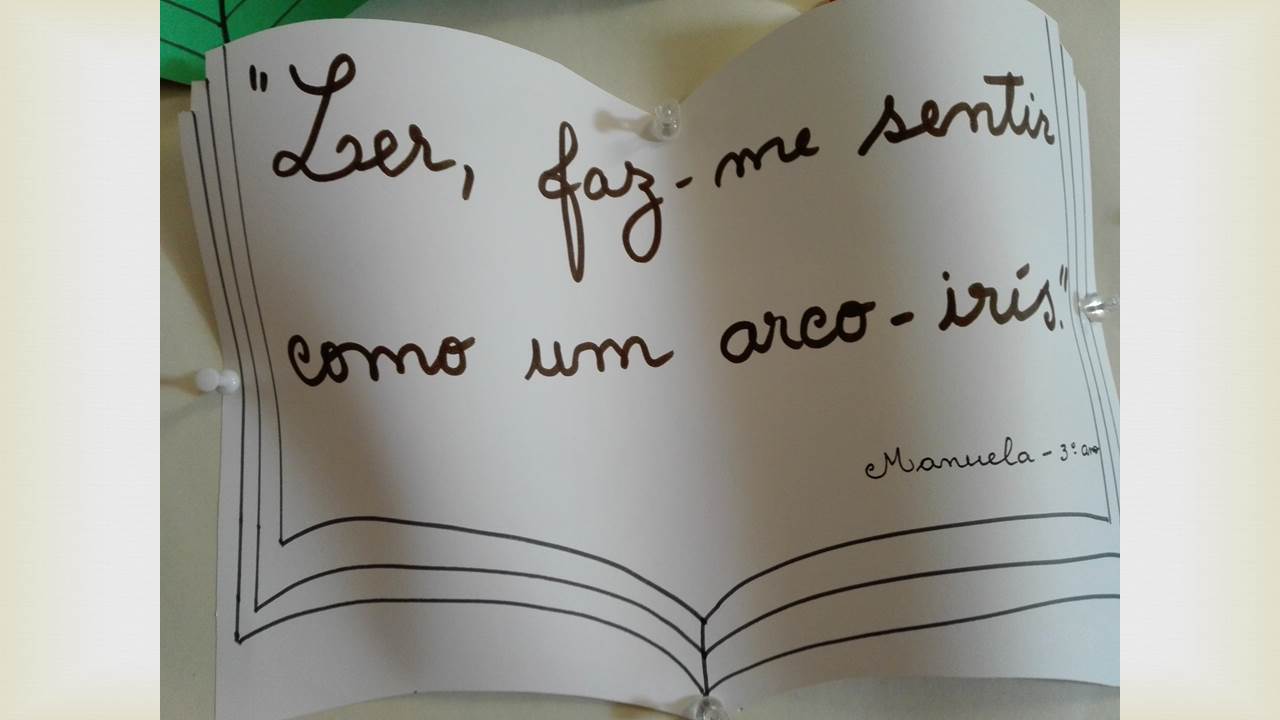 "Ler, faz-me sentir
como um arco-irís."
Manuela - 3º ano